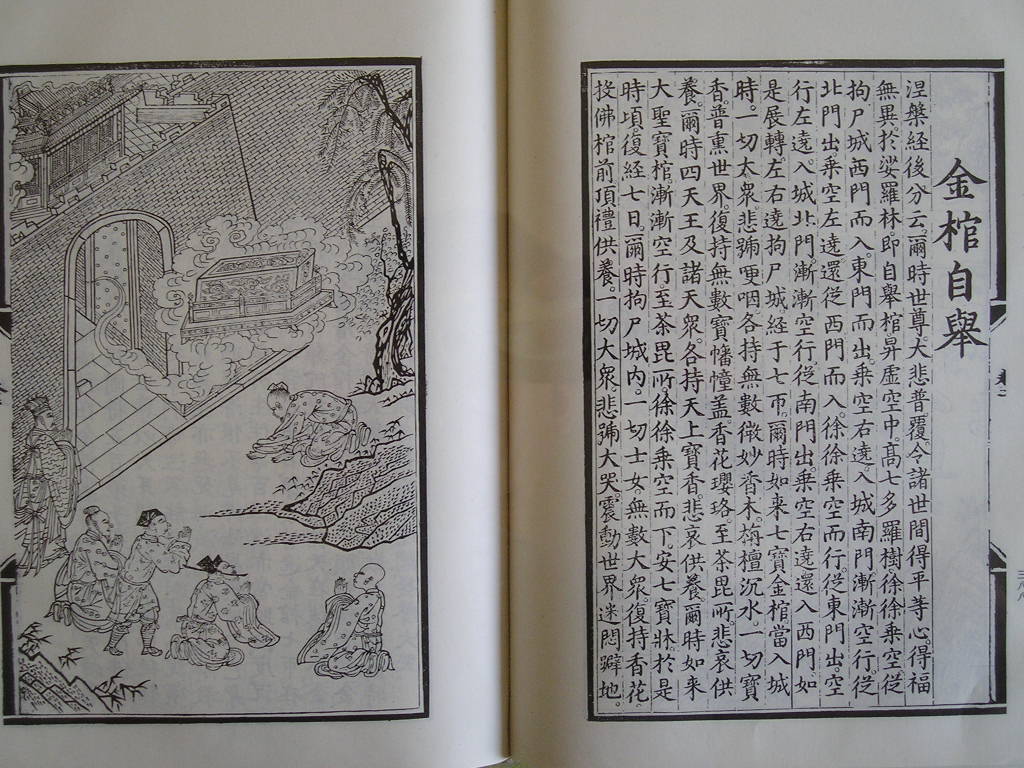 金棺自舉
涅槃経後分云。爾時世尊。大悲普覆。令諸世間得平等心。得福
無異。於娑羅林即自舉棺。昇虛空中。高七多羅樹。徐徐乗空。從
拘尸城西門而入。東門而出。乗空右遶。入城南門。漸漸空行。從
北門出。乗空左遶。還從西門而入。徐徐乗空而行。從東門出。空
行左遶。入城北門。漸漸空行。從南門出。乗空右遶。還入西門。如
是展轉左右遶拘尸城。経于七帀。爾時如来七寶金棺。當入城
時。一切大衆悲號哽咽。各持無數微妙香木。栴檀沉水。一切寶
香。普熏世界。復持無數寶幡幢蓋。香花瓔珞。至茶毘所。悲哀供
養。爾時四天王及諸天衆。各持天上寶香。悲哀供養。爾時如来
大聖寶棺。漸漸空行。至茶毘所。徐徐乗空而下。安七寶牀。於是
時頃。復経七日。爾時拘尸城内。一切士女。無數大衆。復持香花。
投佛棺前。頂禮供養。一切大衆悲號大哭。震動世界。迷悶躃地。